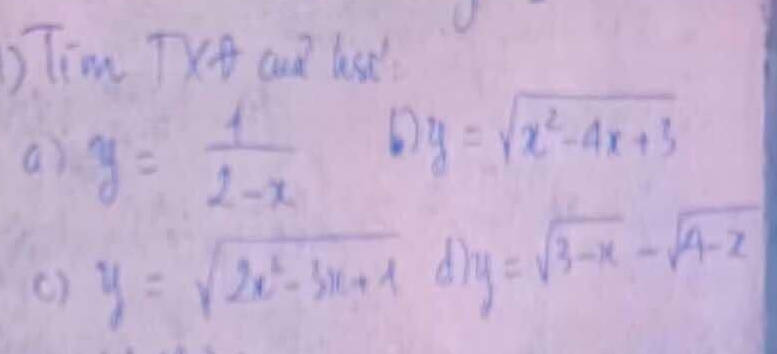 1) Tìm TXĐ của hs:
a) y = 1/(2-x) b) y = √(x²-4x+3)
c) y = √(2x²-3x+1) d) y = √(3-x) - √(4-x)